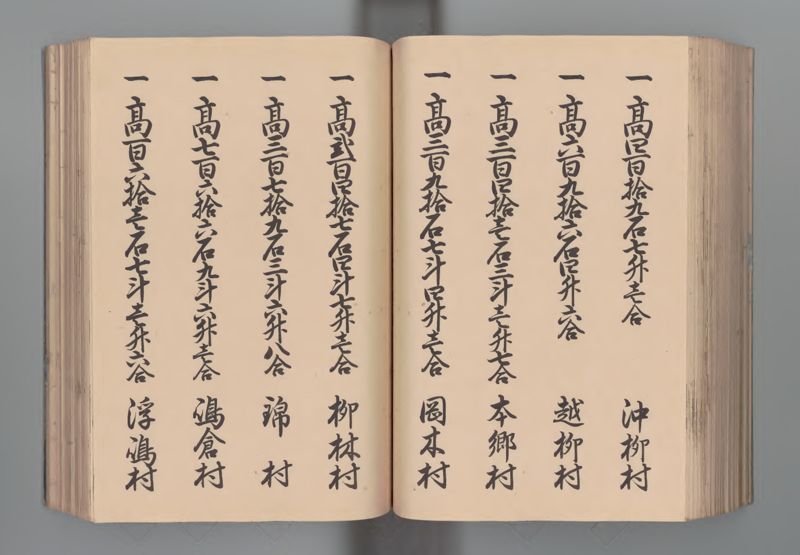 一 高四百拾九石七升壱合 沖柳村
一 高六百九拾六石四升六合 越柳村
一 高三百四拾壱石三斗壱升七合 本郷村
一 高三百九拾石七斗四升壱合 岡本村
一 高弐百四拾七石四斗七升壱合 柳林村
一 高三百七拾九石三斗六升八合 錦村
一 高七百六拾六石九斗六升壱合 嶋倉村
一 高百六拾壱石七斗壱升六合 浮嶋村